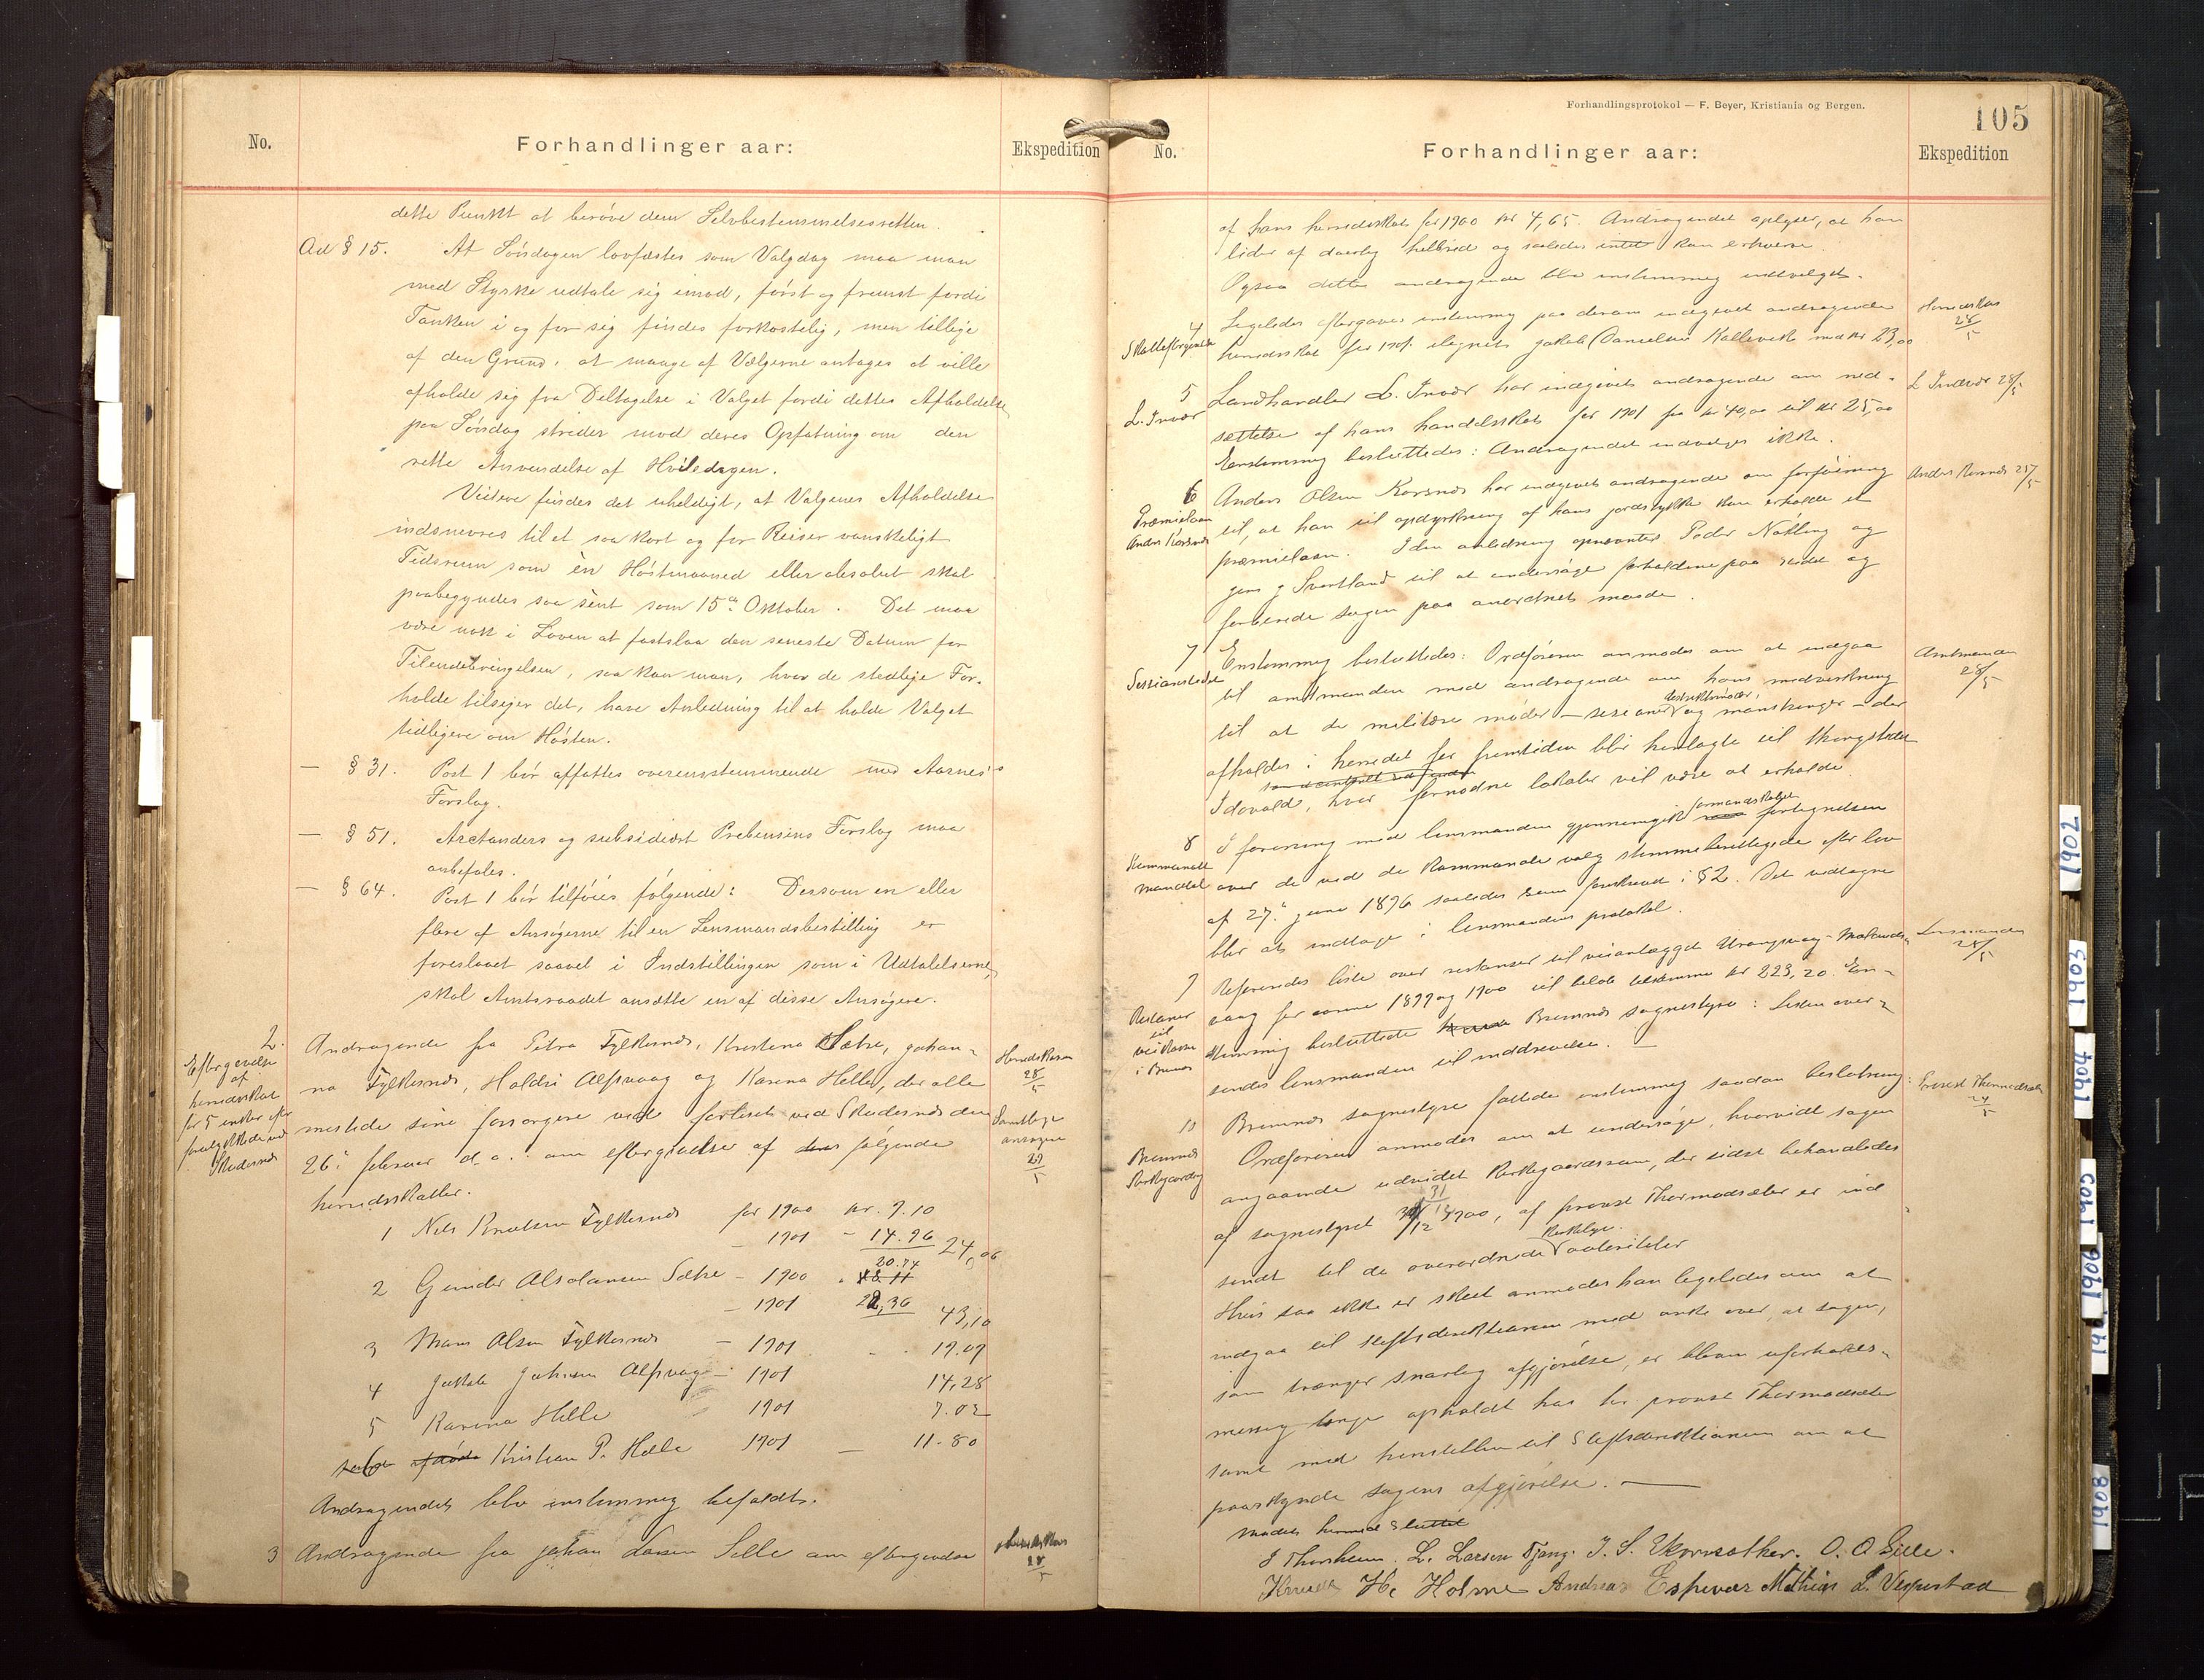 No.
Forhandlinger aar:
Ekspedition
dette Punkt at berøve dem Selvbestemmelsesretten.
Ad § 15. At Søndagen lovfæstes som Valgdag maa man
med Styrke udtale sig imod, først og fremst fordi
Tanken i og for sig findes forkastelig, men tillige
af den Grund, at mange af Vælgerne antages at ville
afholde sig fra Deltagelse i Valget fordi dettes Afholdelse
paa Søndag strider mod deres Opfatning om den
rette Anvendelse af Hviledagen.
Videre findes det uheldigt, at Valgenes Afholdelse
indsnevres til et saa kort og for Reiser vanskeligt
Tidsrum som èn Høstmaaned eller absolut skal
paabegyndes saa sent som 15de Oktober. Det maa
være nok i Loven at fastslaa den seneste Datum for
Tilendebringelsen, saa kan man, hvor de stedlige For-
holde tilsiger det, have Anledning til at holde Valget
tidligere om Høsten.
— § 31. Post 1 bør affattes overensstemmende med Aarnes's
Forslag.
— § 51. Arctanders og subsidiært Prebensens Forslag maa
anbefales.
— § 64. Post 1 bør tilføies følgende: Dersom en eller
flere af Ansøgerne til en Lensmandsbestilling er
foreslaaet saavel i Indstillingen som i Udtalelserne,
skal Amtsraadet ansætte en af disse Ansøgere.
2.
Eftergivelse
af
herredsskat
for 5 enker efter
forulykkede ved
Skudesnæs
Andragende fra Petra Fylkesnæs, Kristina Sætre, Johan-
na Fylkesnæs, Haldri Alfsvaag og Karina Helle, der alle
mistede sine forsørgere ved forliset ved Skudesnæs den
26de februar d. a. om eftergivelse af følgende
herredsskatter.
Herredskassen
28/5
Samtlige
ansøgere
29/5
1 Nils Knutsen Fylkesnæs for 1900 kr. 9.10
— 1901 - 14.96 24,06
2 Gunder Alsolamsen Sætre - 1900 20.74
- 1901 22,36 43,10
3 Mons Olsen Fylkesnæs - 1901 19.09
4 Jakob Johnsen Alfsvaag - 1901 14,28
5 Karina Helle 1901 7.02
6 Kristian P. Helle 1901 — 11.80
Andragendet blev enstemmig bifaldt.
3 Andragende fra Johan Larsen Selle om eftergivelse
Herredskas
28/5
Forhandlingsprotokol — F. Beyer, Kristiania og Bergen.
105
No.
Forhandlinger aar:
Ekspedition
af hans herredsskat for 1900 kr 4,65. Andragendet oplyser, at han
lider af daarlig helbred og saaledes intet kan erhverve.
Ogsaa dette andragende blev enstemmig indvilget.
4
Skatteeftergivelse
Ligeledes eftergaves enstemmig paa derom indgivet andragende
herredsskat for 1901 ilignet Jakob Danielsen Kallevik med kr 23,00
Herredskas
28/5
5
L. Innvær
Landhandler L. Innvær har indgivet andragende om ned-
sættelse af hans handelsskat for 1901 fra kr 40,00 til kr 25,00
Enstemmig besluttedes: Andragendet indvilges ikke.
L Innvær 28/5
6
Præmielaan
Anders Korsnæs
Anders Olsen Korsnæs har indgivet andragende om forføining
til, at han til opdyrkning af hans jordstykke kan erholde et
præmielaan. I den anledning opnævntes Peder Nøtling og
Jens J Svortland til at undersøge forholdene paa stedet og
forberede sagen paa anordnet maade.
Anders Korsnæs 28/5
7
Sessionsstedet
Enstemmig besluttedes: Ordføreren anmodes om at indgaa
til amtmanden med andragende om hans medvirkning
til at de militære møder — sesioner distriktsmøder, og mønstringer — der
afholdes i herredet for fremtiden blir henlagte til thingstedet
Idovald, hvor fornødne lokaler vil være at erholde.
Amtmanden
28/5
8
Kommunale
mandtal
I forening med lensmanden gjennemgik formandskabet fortegnelsen
over de ved de kommunale valg stemmeberettigede efter lov
af 27de juni 1896 saaledes som foreskrevet i § 2. Det vedtagne
blir at indtage i lensmandens protokol.
9
Restancer
til
veikassen
i Bremnes
Refereredes liste over restanser til veianlægget Urangsvaag-Mælands-
vaag for aarene 1899 og 1900 til beløb tilsammen kr 223,20. En-
stemmig besluttede Bremnes sognestyre: Listen over-
sendes lensmanden til inddrivelse. —
Lensmanden
28/5
10
Bremnes
Kirkegaard
Bremnes sognestyre fattede enstemmig saadan beslutning:
Ordføreren anmodes om at undersøge, hvorvidt sagen
angaaende udvidet kirkegaardsrum, der sidst behandledes
af sognestyret 31/12 1900, af provst Thormodsæter er ind
sendt til de overordnede kirkelige autoriteter
Hvis saa ikke er skeet anmodes han ligeledes om at
indgaa til stiftsdirektionen med anke over, at sagen,
som trænger snarlig afgjørelse, er bleven uforholds-
mæssig længe opholdt hos hr provst Thormodsæter
samt med henstillen til Stiftsdirektionen om at
paaskynde sagens afgjørelse. —
Provst Thormodsæter
29/5
Mødet hermed sluttet
J Thorsheim. L. Larsen Tjong. J. S. Ekornsæther. O. O Gille.
Knud H. Holme Andreas Espevær Mathias L. Vespestad
1902
1903
1904
1905
1906
1908